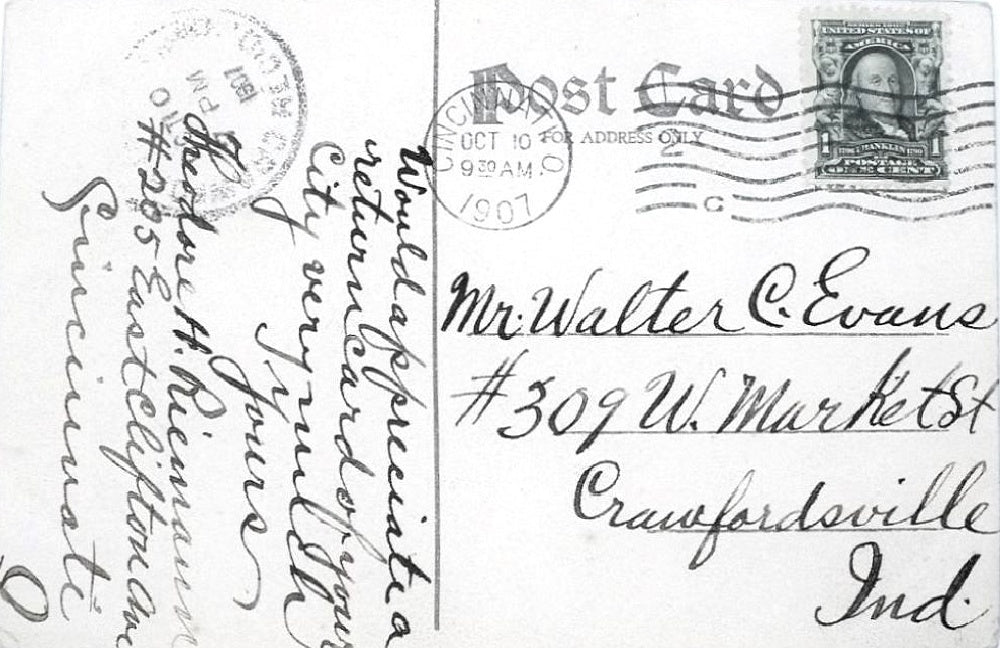 Post Card
FOR ADDRESS ONLY
UNITED STATES OF
AMERICA
1 FRANKLIN 1
POSTAGE
ONE CENT
CINCINNATI, O
OCT 10
9 30 AM.
1907
2
C
Mr. Walter C. Evans
#309 W. Market St
Crawfordsville
Ind.
REC'D
1907
PM
10
Would appreciate a
return Card of your
City very much
Yours
Theodore H. Riemann
#205 East Clifton Ave
Cincinnati
O